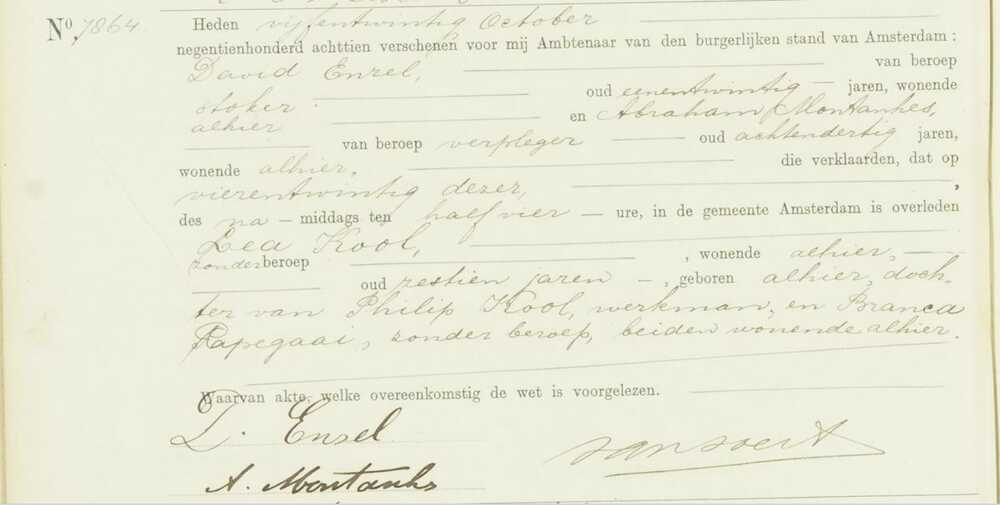 No. 7864.
Heden vijfentwintig October
negentienhonderd achttien verschenen voor mij Ambtenaar van den burgerlijken stand van Amsterdam :
David Enzel, van beroep
stoker oud eenentwintig jaren, wonende
alhier en Abraham Montanhes,
van beroep verpleger oud achtendertig jaren,
wonende alhier, die verklaarden, dat op
vierentwintig dezer,
des na - middags ten half vier ure, in de gemeente Amsterdam is overleden
Lea Kool,
zonder beroep , wonende alhier,
oud zestien jaren , geboren alhier, doch-
ter van Philip Kool, werkman, en Branca
Papegaai, zonder beroep, beiden wonende alhier.
Waarvan akte, welke overeenkomstig de wet is voorgelezen.
D. Enzel
A. Montanhs